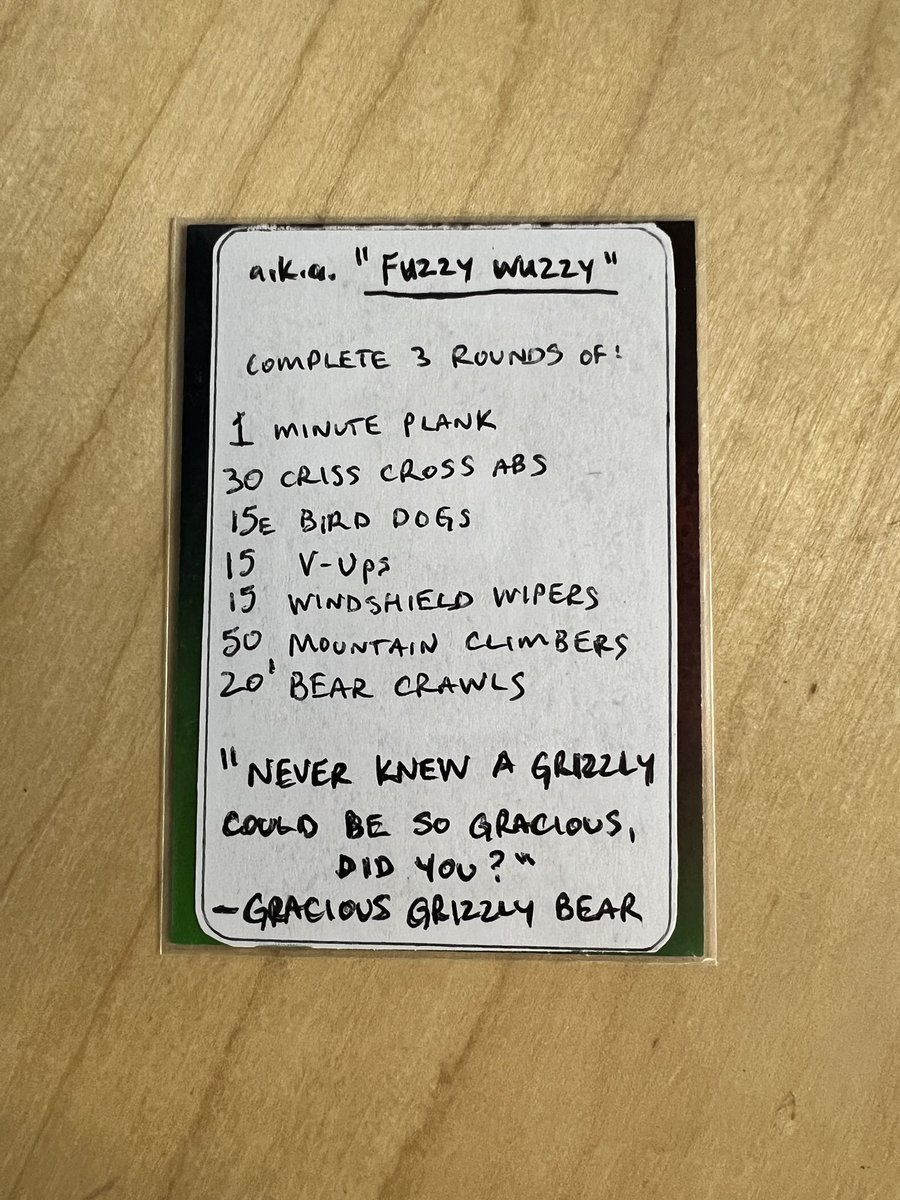 a.k.a. "FUZZY WUZZY"
COMPLETE 3 ROUNDS OF:
1 MINUTE PLANK
30 CRISS CROSS ABS
15E BIRD DOGS
15 V-Ups
15 WINDSHIELD WIPERS
50 MOUNTAIN CLIMBERS
20' BEAR CRAWLS
"NEVER KNEW A GRIZZLY
COULD BE SO GRACIOUS,
DID YOU?"
- GRACIOUS GRIZZLY BEAR